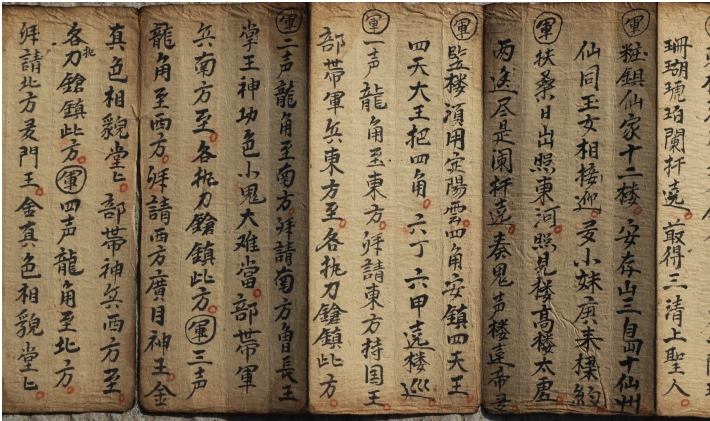 珊瑚琥珀闌杆遶 㝡得三清上聖人
軍 粧鎖仙家十二楼 安存山三自四十仙州
仙同玉女相接迎 麦小妹庚来樑
軍 扶桑日出照東河 照見楼高楼太
两边尽是阑杆遶 奏鬼声楼
軍 監楼須用安陽雲 四角安鎮四天王
四天大王把四角 六丁六甲遶楼巡
軍 一声龍角至東方 拜請東方持国王
部帶軍兵東方至 各执刀鎗鎮此方
軍 二声龍角至南方 拜請南方曾長王
掌王神功色小鬼大难當 部帶軍
兵南方至 各执刀鎗鎮此方 軍 三声
龍角至西方 拜請西方廣目神王金
真色相貌堂〻 部帶神兵西方至
各执刀鎗鎮此方 軍 四声龍角至北方
拜請北方麦門王 金真色相貌堂〻